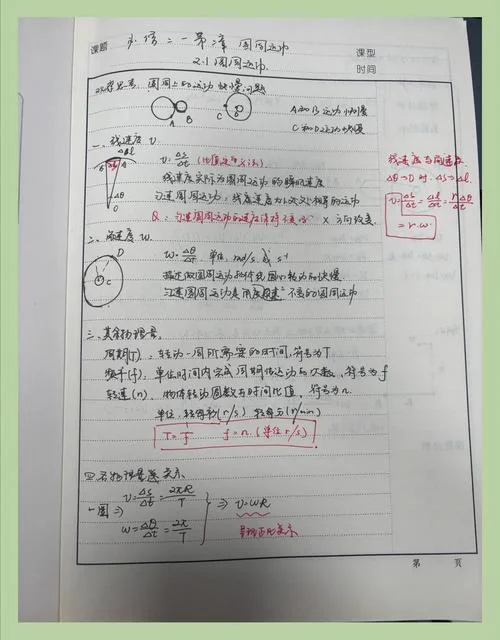 课题 必修二-第二章 圆周运动
课型
2.1 圆周运动
时间
圆周上的运动快慢问题
A B
C D
A和B运动快慢
C和D运动快慢
一、线速度 v
Δl
B A
Δθ
O
v=Δs/Δt (比值定义法)
线速度实际为圆周运动的瞬时速度
匀速圆周运动:线速度大小处处相等的运动
Q: 匀速圆周运动的速度保持不变吗 X 方向改变
线速度与角速度
Δθ→0 时, Δs→Δl
v=Δs/Δt=Δl/Δt=rΔθ/Δt
=r·ω
二、角速度 ω
D
C
ω=Δθ/Δt, 单位: rad/s 或 s⁻¹
描述做圆周运动物体绕圆心转动的快慢
匀速圆周运动是角速度不变的圆周运动
三、其余物理量
周期(T): 转动一周所需要的时间,符号为T
频率(f): 单位时间内完成周期性运动的次数,符号为f
转速(n): 物体转动圈数与时间比值,符号为n
单位: 转每秒(r/s) 转每分(r/min)
T=1/f f=n (单位 r/s)
四、各物理量 关系
一圈 ⇒ v=Δs/Δt=2πR/T
ω=Δθ/Δt=2π/T
⇒ v=ωR
呈现正比关系
第 页